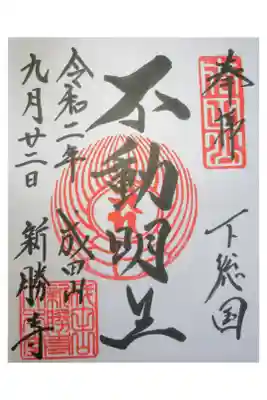 奉拝
下総国
不動明王
令和二年
成田山
九月廿二日
新勝寺